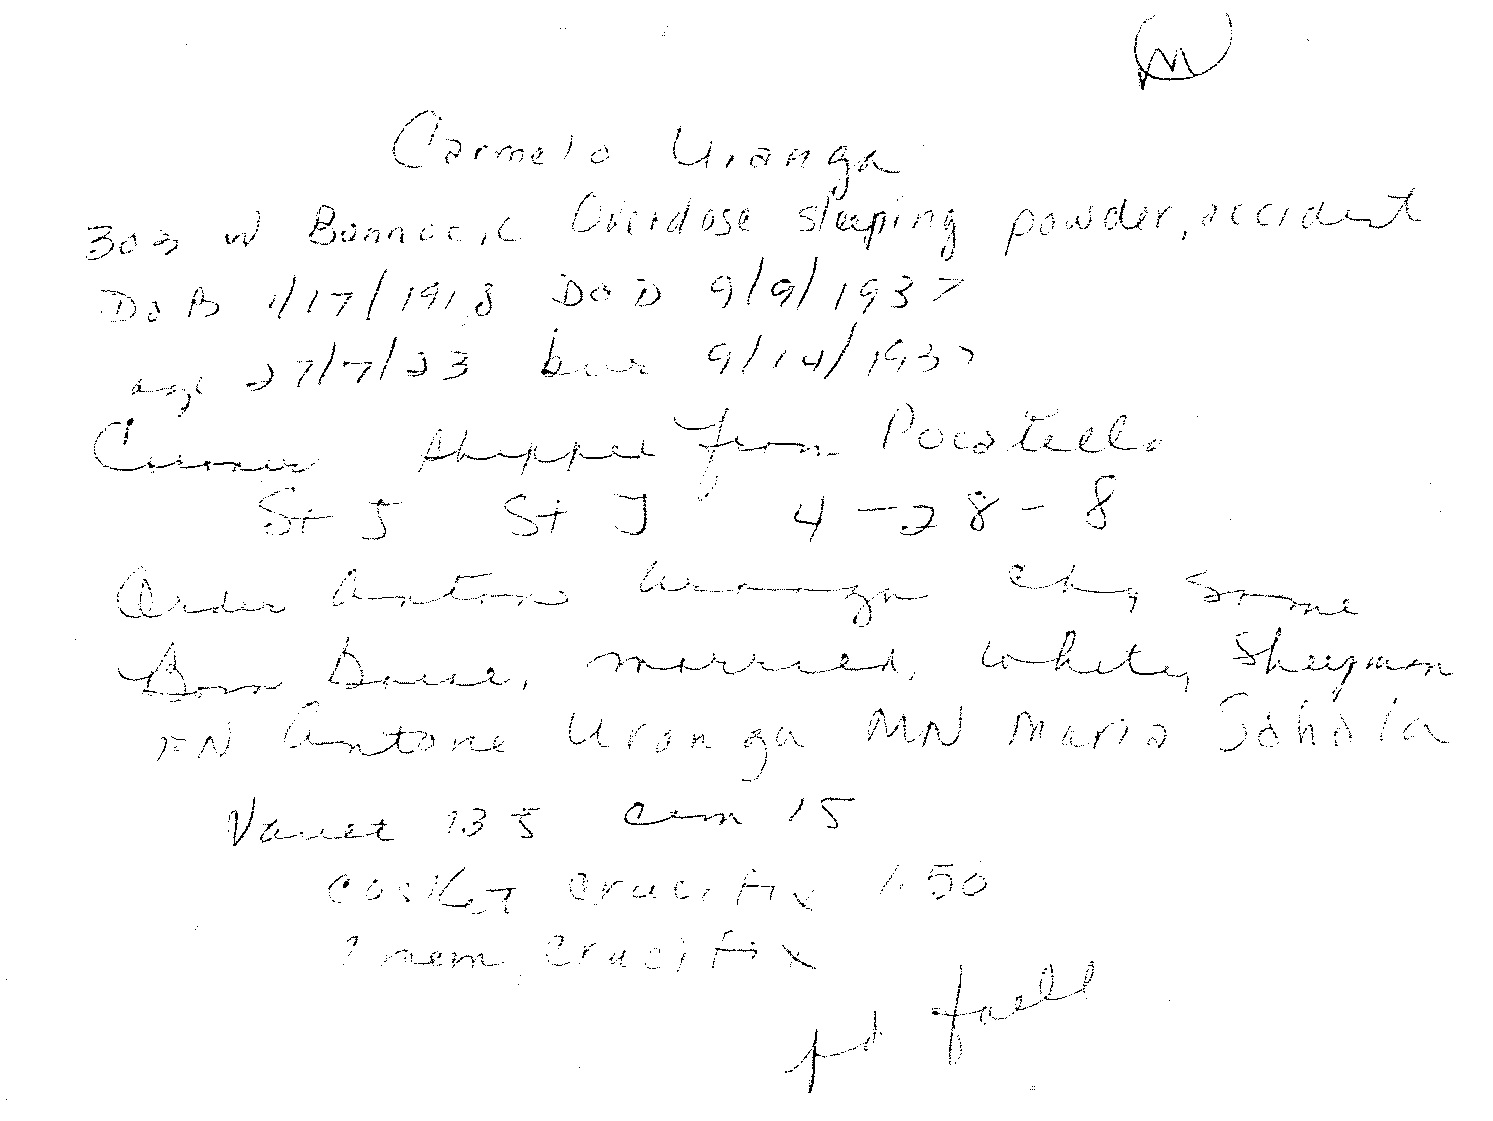 M
Carmelo Uranga
303 W Bannock Overdose sleeping powder, accident
DoB 1/17/1918 DoD 9/9/1937
age 27/7/23 bur 9/14/1937
Coroner shipped from Pocatello
St J St J 4-28-8
Order Antone Uranga Chg Same
Born Boise, married, white, Sheepman
FN Antone Uranga MN Maria
Vault 135 cem 15
Casket crucifix 1.50
1 mem crucifix
pd